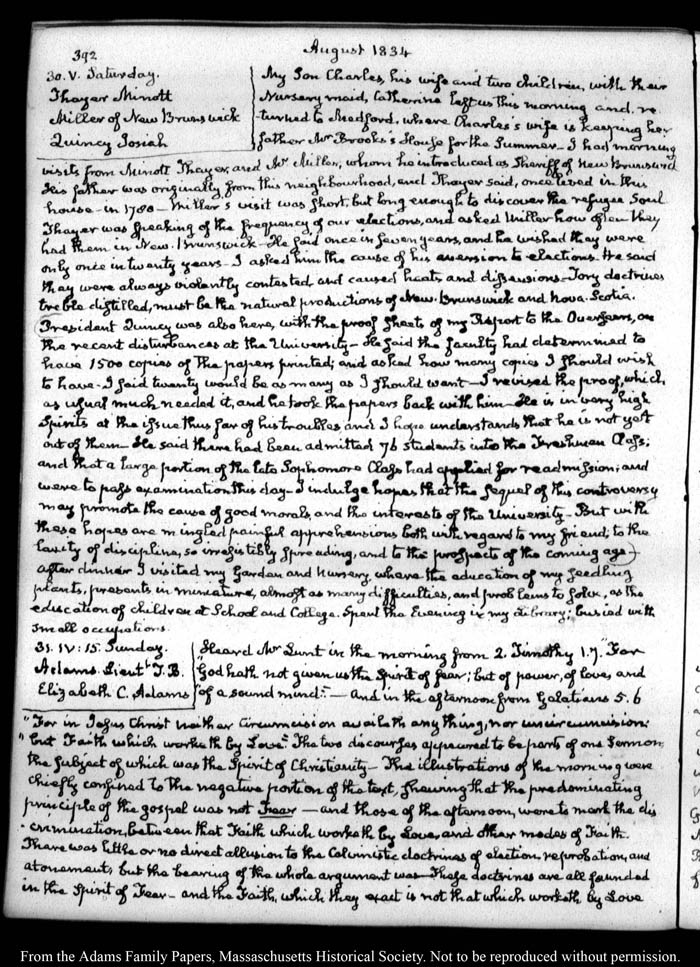 392
August 1834
30. V. Saturday.
Thayer Minott
Miller of New Brunswick
Quincy Josiah
My Son Charles, his wife and two Children, with their
Nursery maid, Catherine left us this morning and re-
turned to Medford, where Charles's wife is keeping her
father Mr Brooks's House for the Summer — I had morning
visits from Minott Thayer, and Mr Miller, whom he introduced as Sheriff of New Brunswick
His father was originally from this neighbourhood, and Thayer said, once lived in this
house — in 1780 — Miller's visit was short, but long enough to discover the refugee Soul
Thayer was speaking of the frequency of our elections, and asked Miller how often they
had them in New-Brunswick — He said once in seven years, and he wished they were
only once in twenty years — I asked him the cause of his aversion to elections. He said
they were always violently contested and caused heats and dissensions — Tory doctrines
treble distilled, must be the natural productions of New-Brunswick and Nova-Scotia.
President Quincy was also here, with the proof sheets of my Report to the Overseers, on
the recent disturbances at the University — He said the faculty had determined to
have 1500 copies of the papers printed; and asked how many copies I should wish
to have — I said twenty would be as many as I should want — I revised the proof, which
as usual much needed it, and he took the papers back with him — He is in very high
Spirits at the issue thus far of his troubles and I hope understands that he is not yet
out of them. He said there had been admitted 76 students into the Freshman Class;
and that a large portion of the late Sophomore Class had applied for readmission; and
were to pass examination this day — I indulge hopes that the sequel of this controversy
may promote the cause of good morals, and the interests of the University — But with
these hopes are mingled painful apprehensions both with regard to my friend, to the
laxity of discipline, so irresistibly spreading, and to the prospects of the coming age —
After dinner I visited my Garden and Nursery, where the education of my seedling
plants, presents in miniature, almost as many difficulties, and problems to solve, as the
education of children at School and College. Spent the Evening in my Library; busied with
small occupations.
31. IV: 15. Sunday.
Adams. Lieutt. T. B.
Elizabeth C. Adams
Heard Mr Lunt in the morning from 2. Timothy 1.7. "For
"God hath not given us the Spirit of fear; but of power, of love, and
"of a sound mind." — And in the afternoon from Galatians 5.6
"For in Jesus Christ neither Circumcision availeth any thing, nor uncircumcision:
"but Faith which worketh by Love." The two discourses appeared to be parts of one Sermon,
the subject of which was the Spirit of Christianity — The illustrations of the morning were
chiefly confined to the negative portion of the text, shewing that the predominating
principle of the gospel was not Fear — and those of the afternoon, were to mark the dis
-crimination, between that Faith which worketh by Love, and other modes of Faith.
There was little or no direct allusion to the Calvinistic doctrines of election, reprobation, and
atonement, but the bearing of the whole argument was — These doctrines are all founded
in the Spirit of Fear — and the Faith, which they exact is not that which worketh by Love
From the Adams Family Papers, Massachusetts Historical Society. Not to be reproduced without permission.